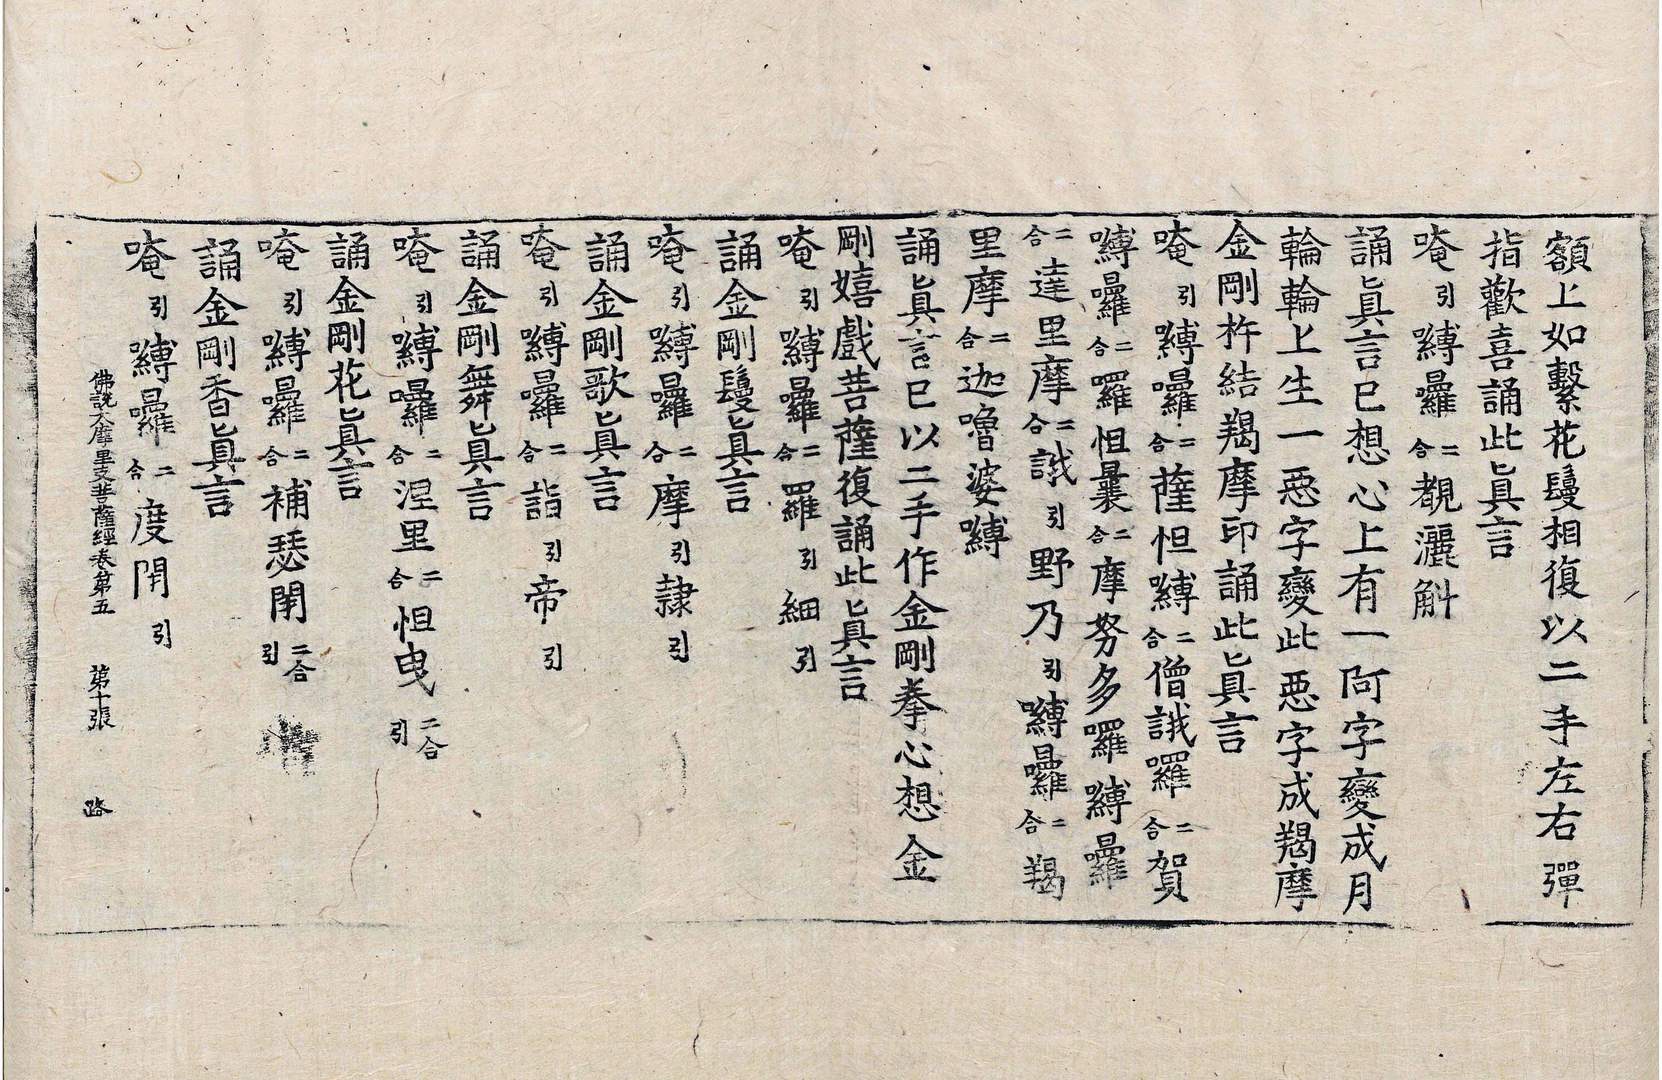 額上如繫花鬘相復以二手左右彈
指歡喜誦此眞言
唵引嚩囉二合覩灑斛
誦眞言已想心上有一阿字變成月
輪輪上生一惡字變此惡字成羯摩
金剛杵結羯摩印誦此眞言
唵引嚩囉二合薩怛嚩二合僧誐囉二合賀
嚩囉二合囉怛曩二合摩努多囉嚩囉
二合達里摩二合誐引野乃引嚩囉二合羯
里摩二合迦嚕婆嚩
誦眞言已以二手作金剛拳心想金
剛嬉戲菩薩復誦此眞言
唵引嚩囉二合囉引細引
誦金剛鬘眞言
唵引嚩囉二合摩引隷引
誦金剛歌眞言
唵引嚩囉二合詣引帝引
誦金剛舞眞言
唵引嚩囉二合涅里二合怛曳二合引
誦金剛花眞言
唵引嚩囉二合補瑟閇二合引
誦金剛香眞言
唵引嚩囉二合度閇引
佛說大摩里支菩薩經卷第五 第十張 路